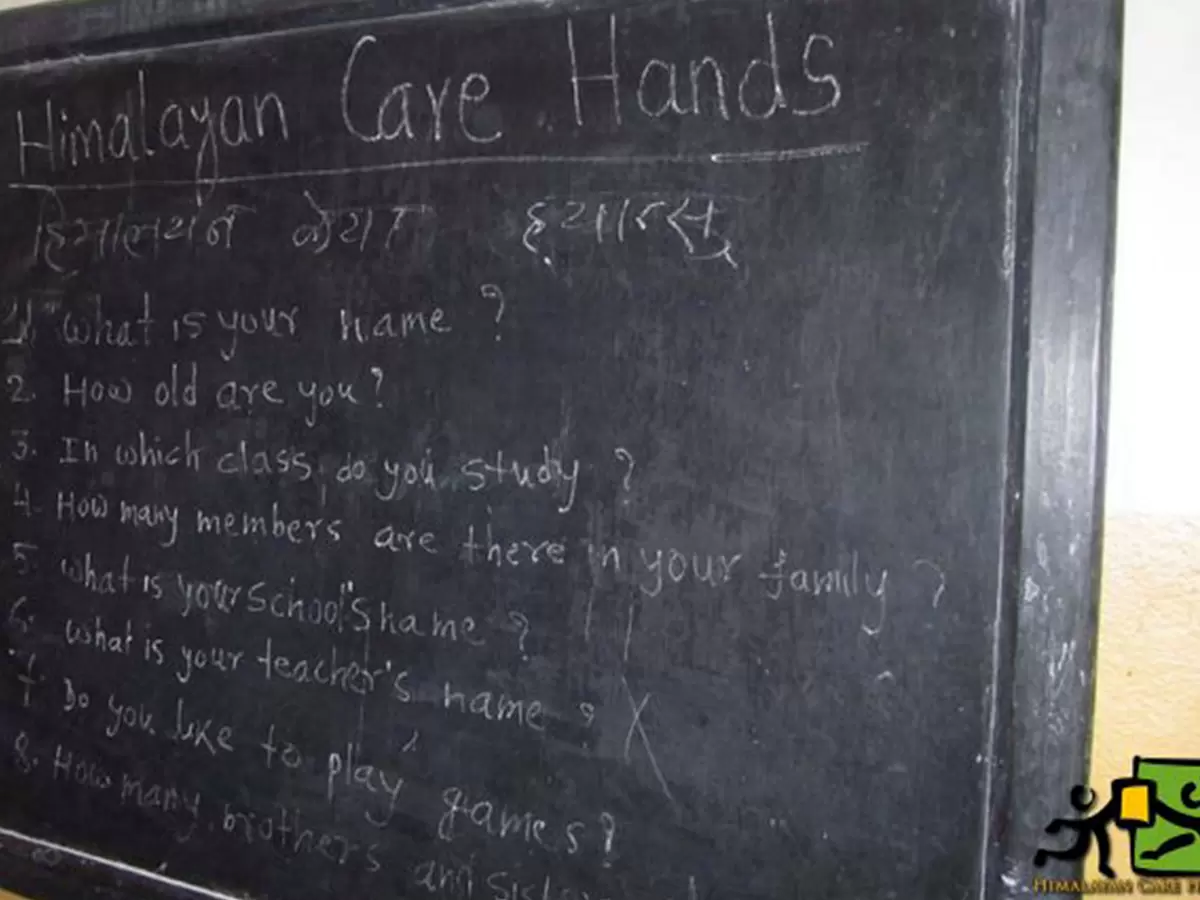 Himalayan Care Hands
हिमालयन केयर ह्याण्डस्
1. What is your name ?
2. How old are you?
3. In which class do you study ?
4. How many members are there in your family ?
5. What is your School's name ?
6. What is your teacher's name ?
7. Do you like to play games?
8. How many brothers and
HIMALAYAN CARE H